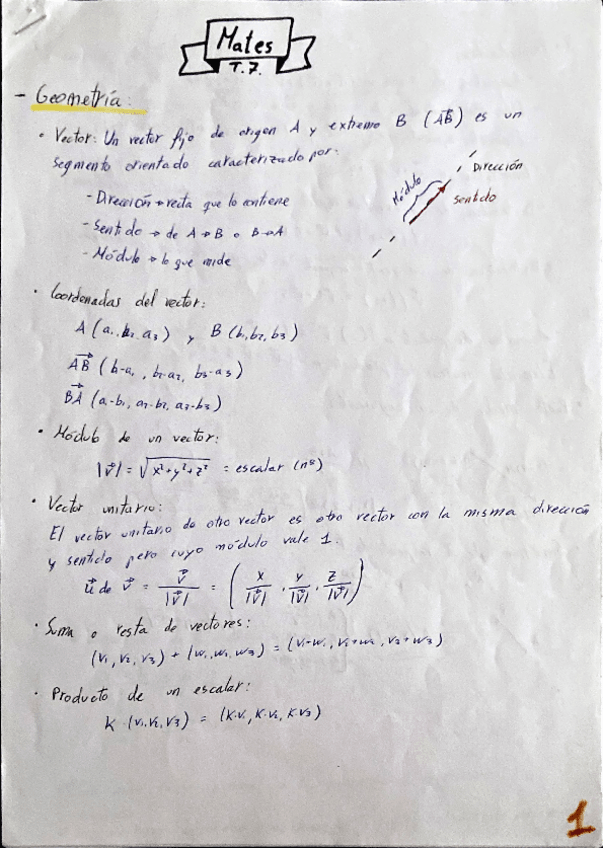 Mates
T.7.
- Geometría:
• Vector: Un vector fijo de origen A y extremo B (AB) es un
segmento orientado caracterizado por:
- Dirección → recta que lo contiene
- Sentido → de A → B o B → A
- Módulo → lo que mide
Módulo
Dirección
Sentido
• Coordenadas del vector:
A (a₁, b₂, a₃) y B (b₁, b₂, b₃)
AB (b-a₁, b₂-a₂, b₃-a₃)
BA (a-b₁, a₂-b₂, a₃-b₃)
• Módulo de un vector:
|v⃗| = √x²+y²+z² = escalar (nº)
• Vector unitario:
El vector unitario de otro vector es otro vector con la misma dirección
y sentido pero cuyo módulo vale 1.
u⃗ de v⃗ = v⃗/|v⃗| = (x/|v⃗|, y/|v⃗|, z/|v⃗|)
• Suma o resta de vectores:
(v₁, v₂, v₃) + (w₁, w₂, w₃) = (v₁+w₁, v₂+w₂, v₃+w₃)
• Producto de un escalar:
K · (v₁, v₂, v₃) = (K·v₁, K·v₂, K·v₃)
1